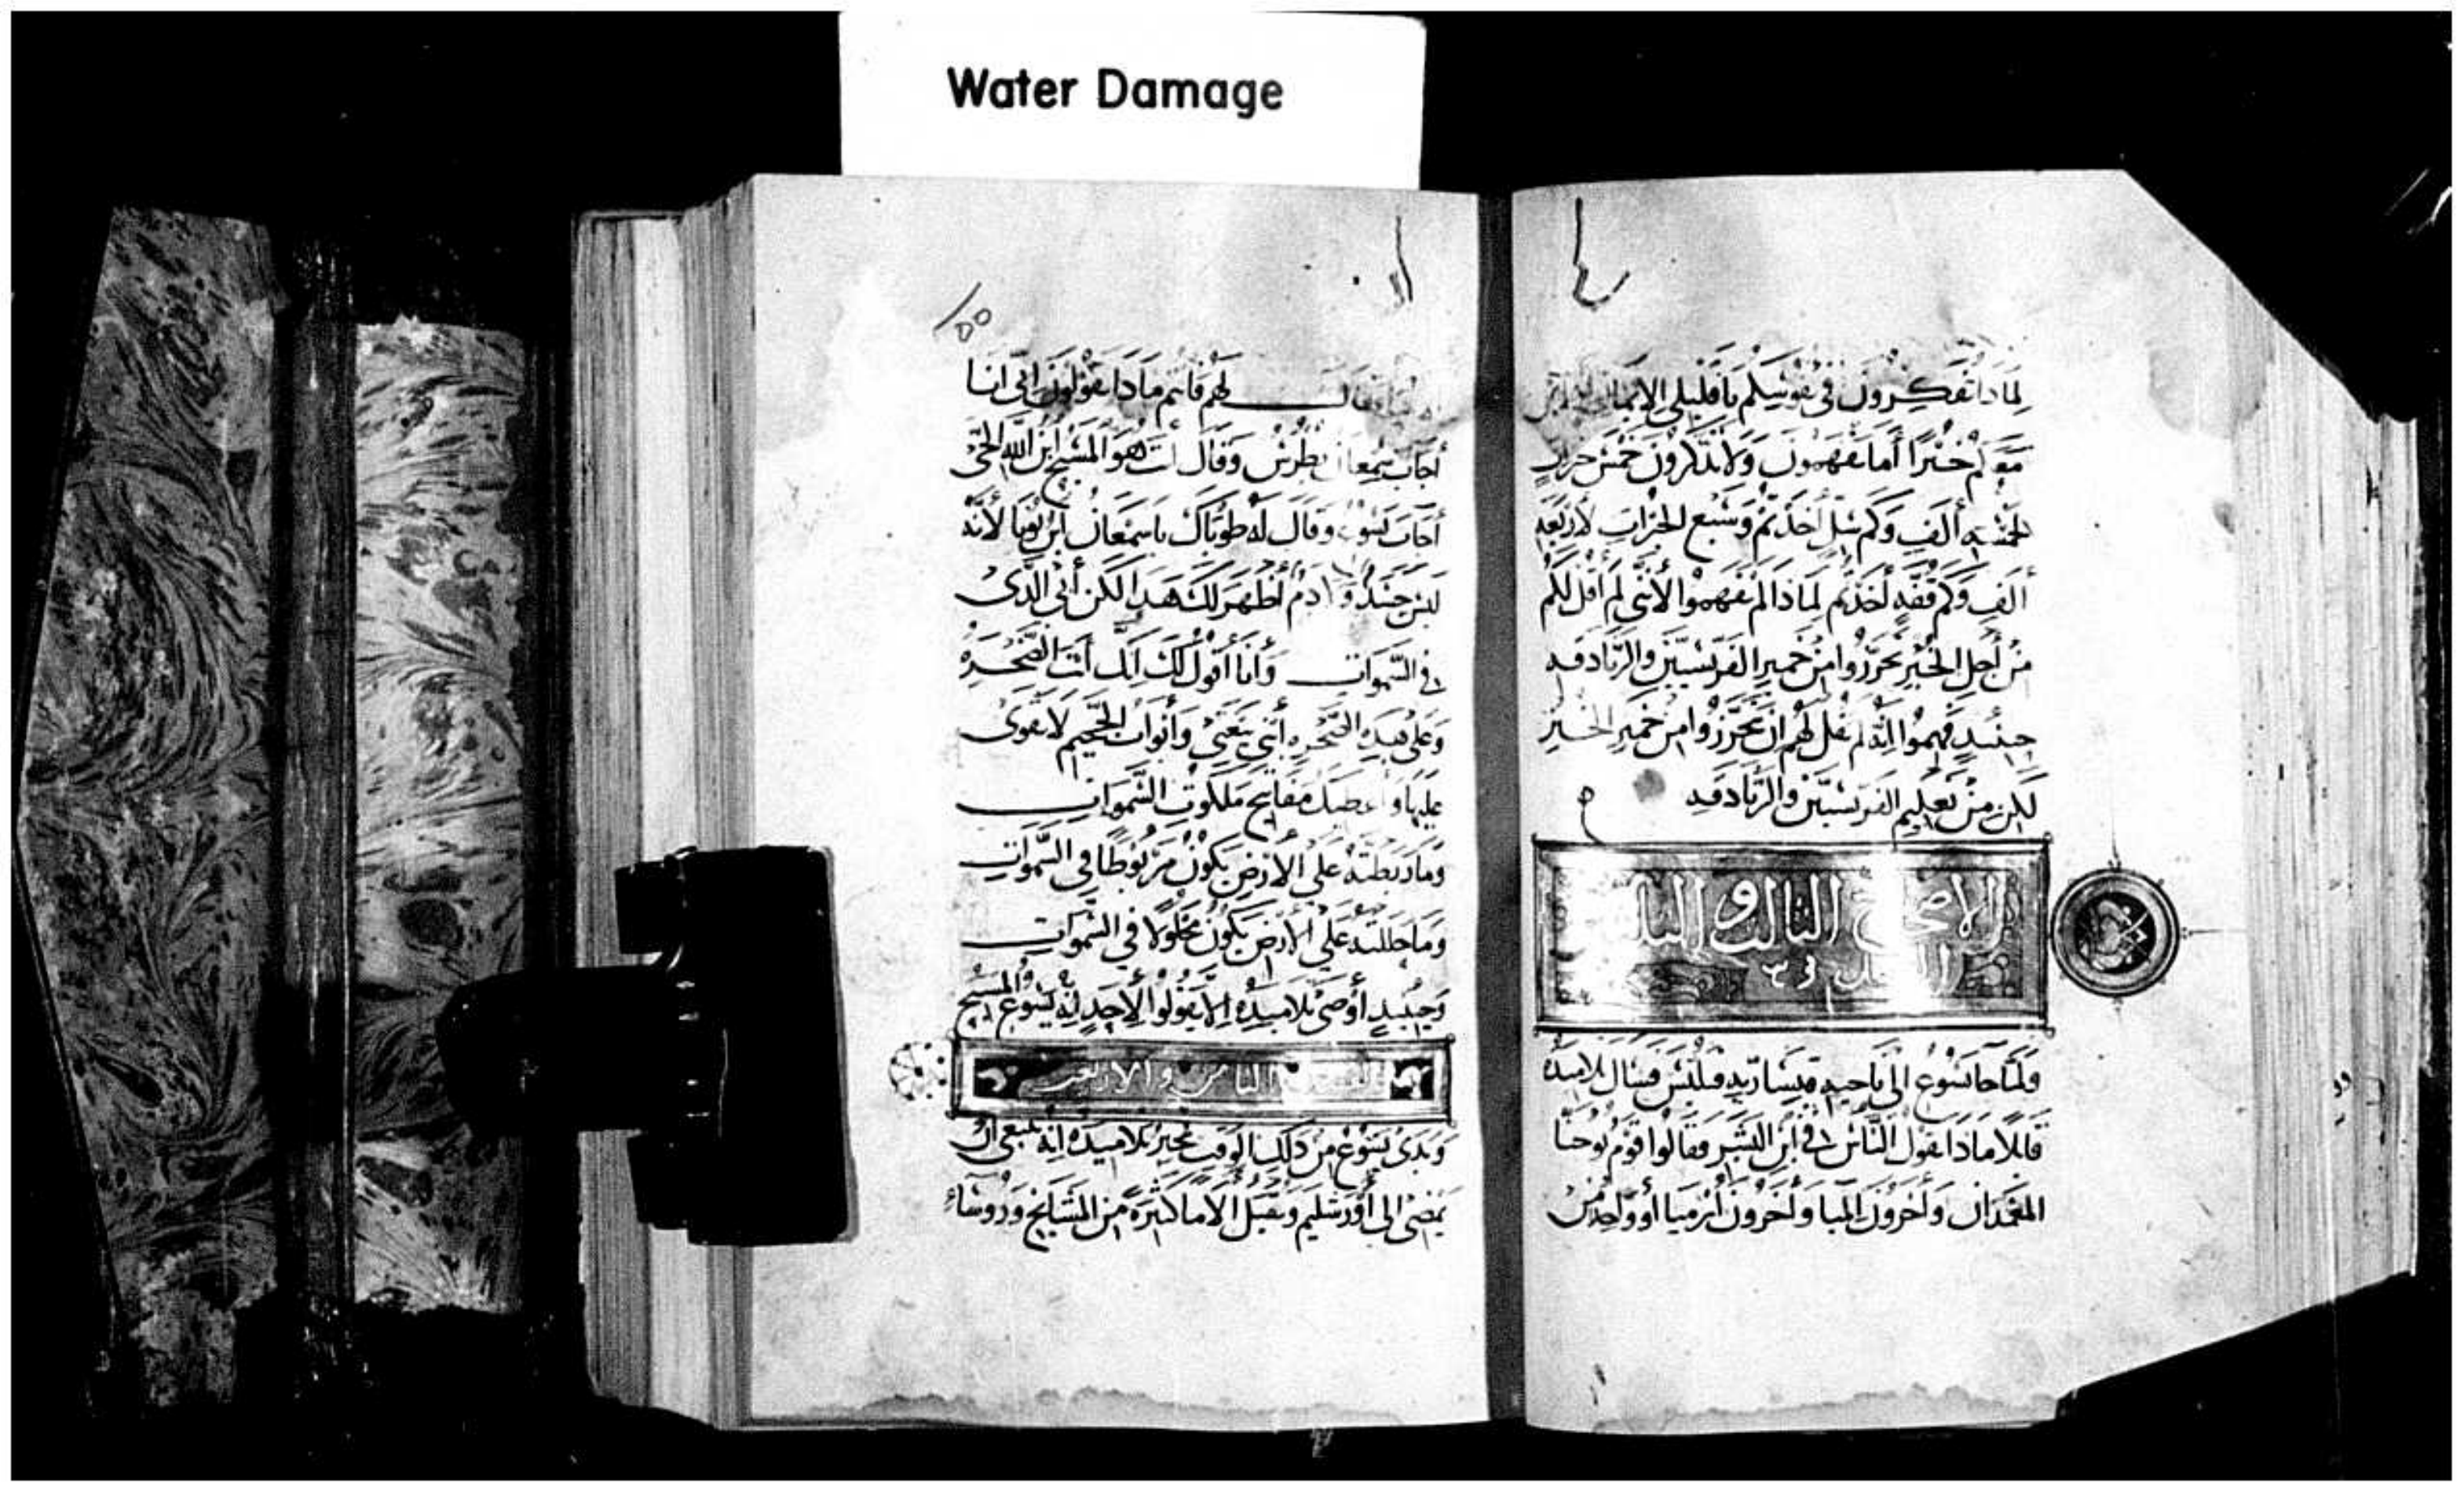 Water Damage
لماذا تفكرون في نفوسكم يا قليلي الايمان
معكم خبزا أما تفهمون ولا تذكرون خمس خبزات
لخمسه ألف وكم سل أخذتم وسبع الخبزات لأربعه
ألف وكم قفه أخذتم لماذا لم تفهموا لأنى لم أقل لكم
من أجل الخبز تحرزوا من خمير الفريسيين والزنادقه
حينئد فهموا انه لم يقل لهم ان يتحرزوا من خمير الخبز
لكن من تعليم الفريسيين والزنادقه
الاصحاح الثالث و
فلما جا يسوع الى ناحيه قيساريه فيلبس فسال تلاميده
قايلا مادا تقول الناس في ابن البشر فقالوا قوم يوحنا
المعمدان واخرون اليا واخرون ارميا أو واحد من
١٥٥
لهم فانتم مادا تقولون انى انا
أجاب سمعان بطرس وقال أنت هو المسيح ابن الله الحى
أجاب يسوع وقال له طوباك يا سمعان ابن يونا لأنه
ليس جسد ولا دم أظهر لك هدا لكن أبى الدى
فى السموات وأنا أقول لك انك أنت الصخره
وعلى هده الصخره أبنى بيعتى وأبواب الجحيم لا تقوى
عليها وأعطيك مفاتيح ملكوت السموات
وما ربطته على الارض يكون مربوطا في السموات
وما حللته على الأرض يكون محلولا في السموات
وحينيد أوصى تلاميده الا يقولوا لأحد انه يسوع المسيح
الفصل الثامن والاربعين
وبدى يسوع من دلك الوقت يخبر تلاميده انه ينبغى ان
يمضى الى أورشليم ويقبل الاما كثيرة من المشايخ وروساء